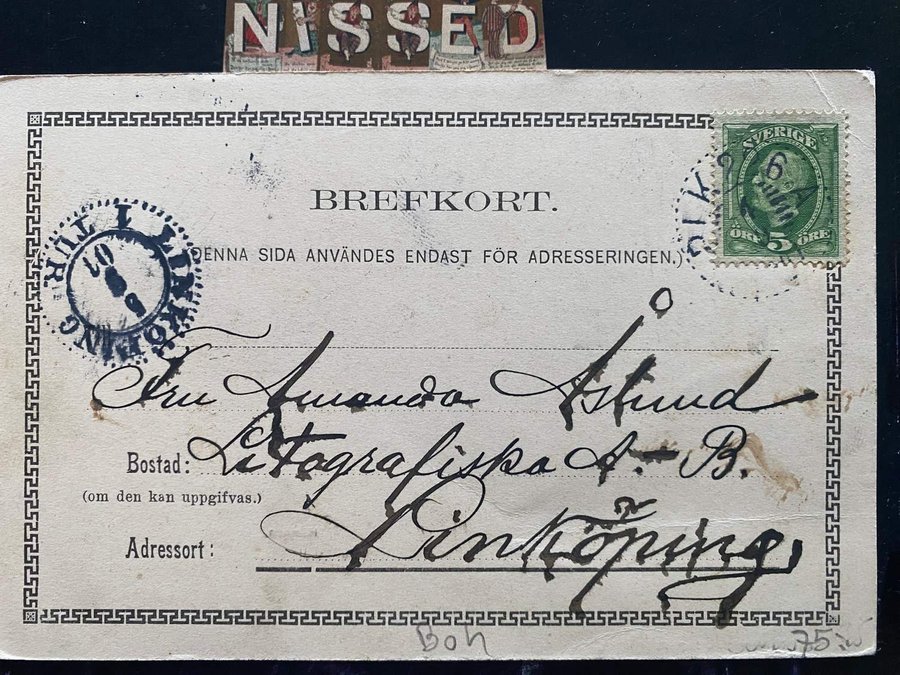 NISSED
BREFKORT.
(DENNA SIDA ANVÄNDES ENDAST FÖR ADRESSERINGEN.)
SVERIGE
ÖRE 5 ÖRE
LINKÖPING
1 TUR
01
Fru Amanda Åslund
Bostad: Litografiska A.-B.
(om den kan uppgifvas.)
Adressort: Linköping
Boh
75:-